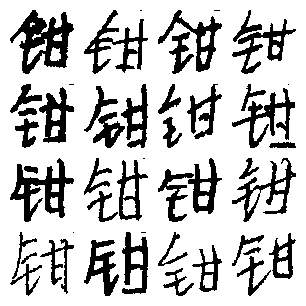 钳钳钳钳
钳钳钳钳
钳钳钳钳
钳钳钳钳